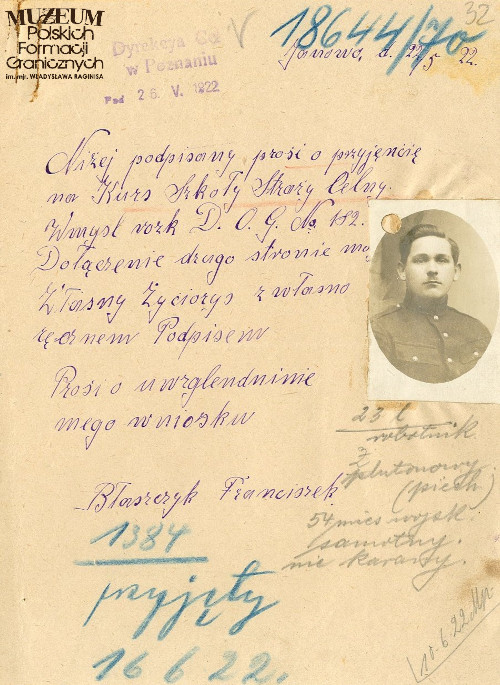 MUZEUM
Polskich
Formacji
Granicznych
im. mjr. WŁADYSŁAWA RAGINISA
32
18644/70
V
Dyrekcya Ceł
w Poznaniu
26. V. 1922
Janowo, d. 22/5 22.
Niżej podpisany prosi o przyjęncię
na Kurs Szkoły Straży Celny.
Wmysl rozk D. O. G. No 182.
Dołączenie drugo stronie mój
Własny Życiorys z własno
ręcznem Podpisem
Prosi o uwzglendninie
mego wniosku
Błaszczyk Franciszek
23 l
robotnik.
plutonowy
(piech)
54 mies wojsk.
samotny.
nie karany.
1384
przyjęty
16 6 22.
10.6.22